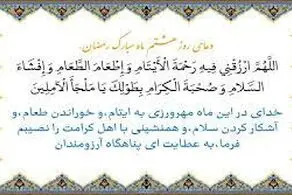 دعای روز هشتم ماه مبارک رمضان
اللَّهُمَّ ارْزُقْنِي فِيهِ رَحْمَةَ الْأَيْتَامِ وَ إِطْعَامَ الطَّعَامِ وَ إِفْشَاءَ
السَّلَامِ وَ صُحْبَةَ الْكِرَامِ بِطَوْلِكَ يَا مَلْجَأَ الْآمِلِينَ
خدای در این ماه مهرورزی به ایتام،و خوراندن طعام،و
آشکار کردن سلام،و همنشینی با اهل کرامت را نصیبم
فرما،به عطایت ای پناهگاه آرزومندان